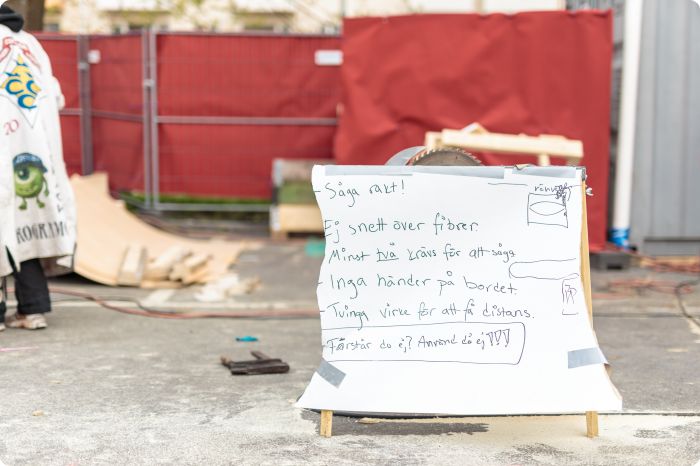 Såga rakt!
Ej snett över fibrer.
Minst två krävs för att såga.
Inga händer på bordet.
Tvinga virke för att få distans.
Förstår du ej? Använd då ej!!!
20